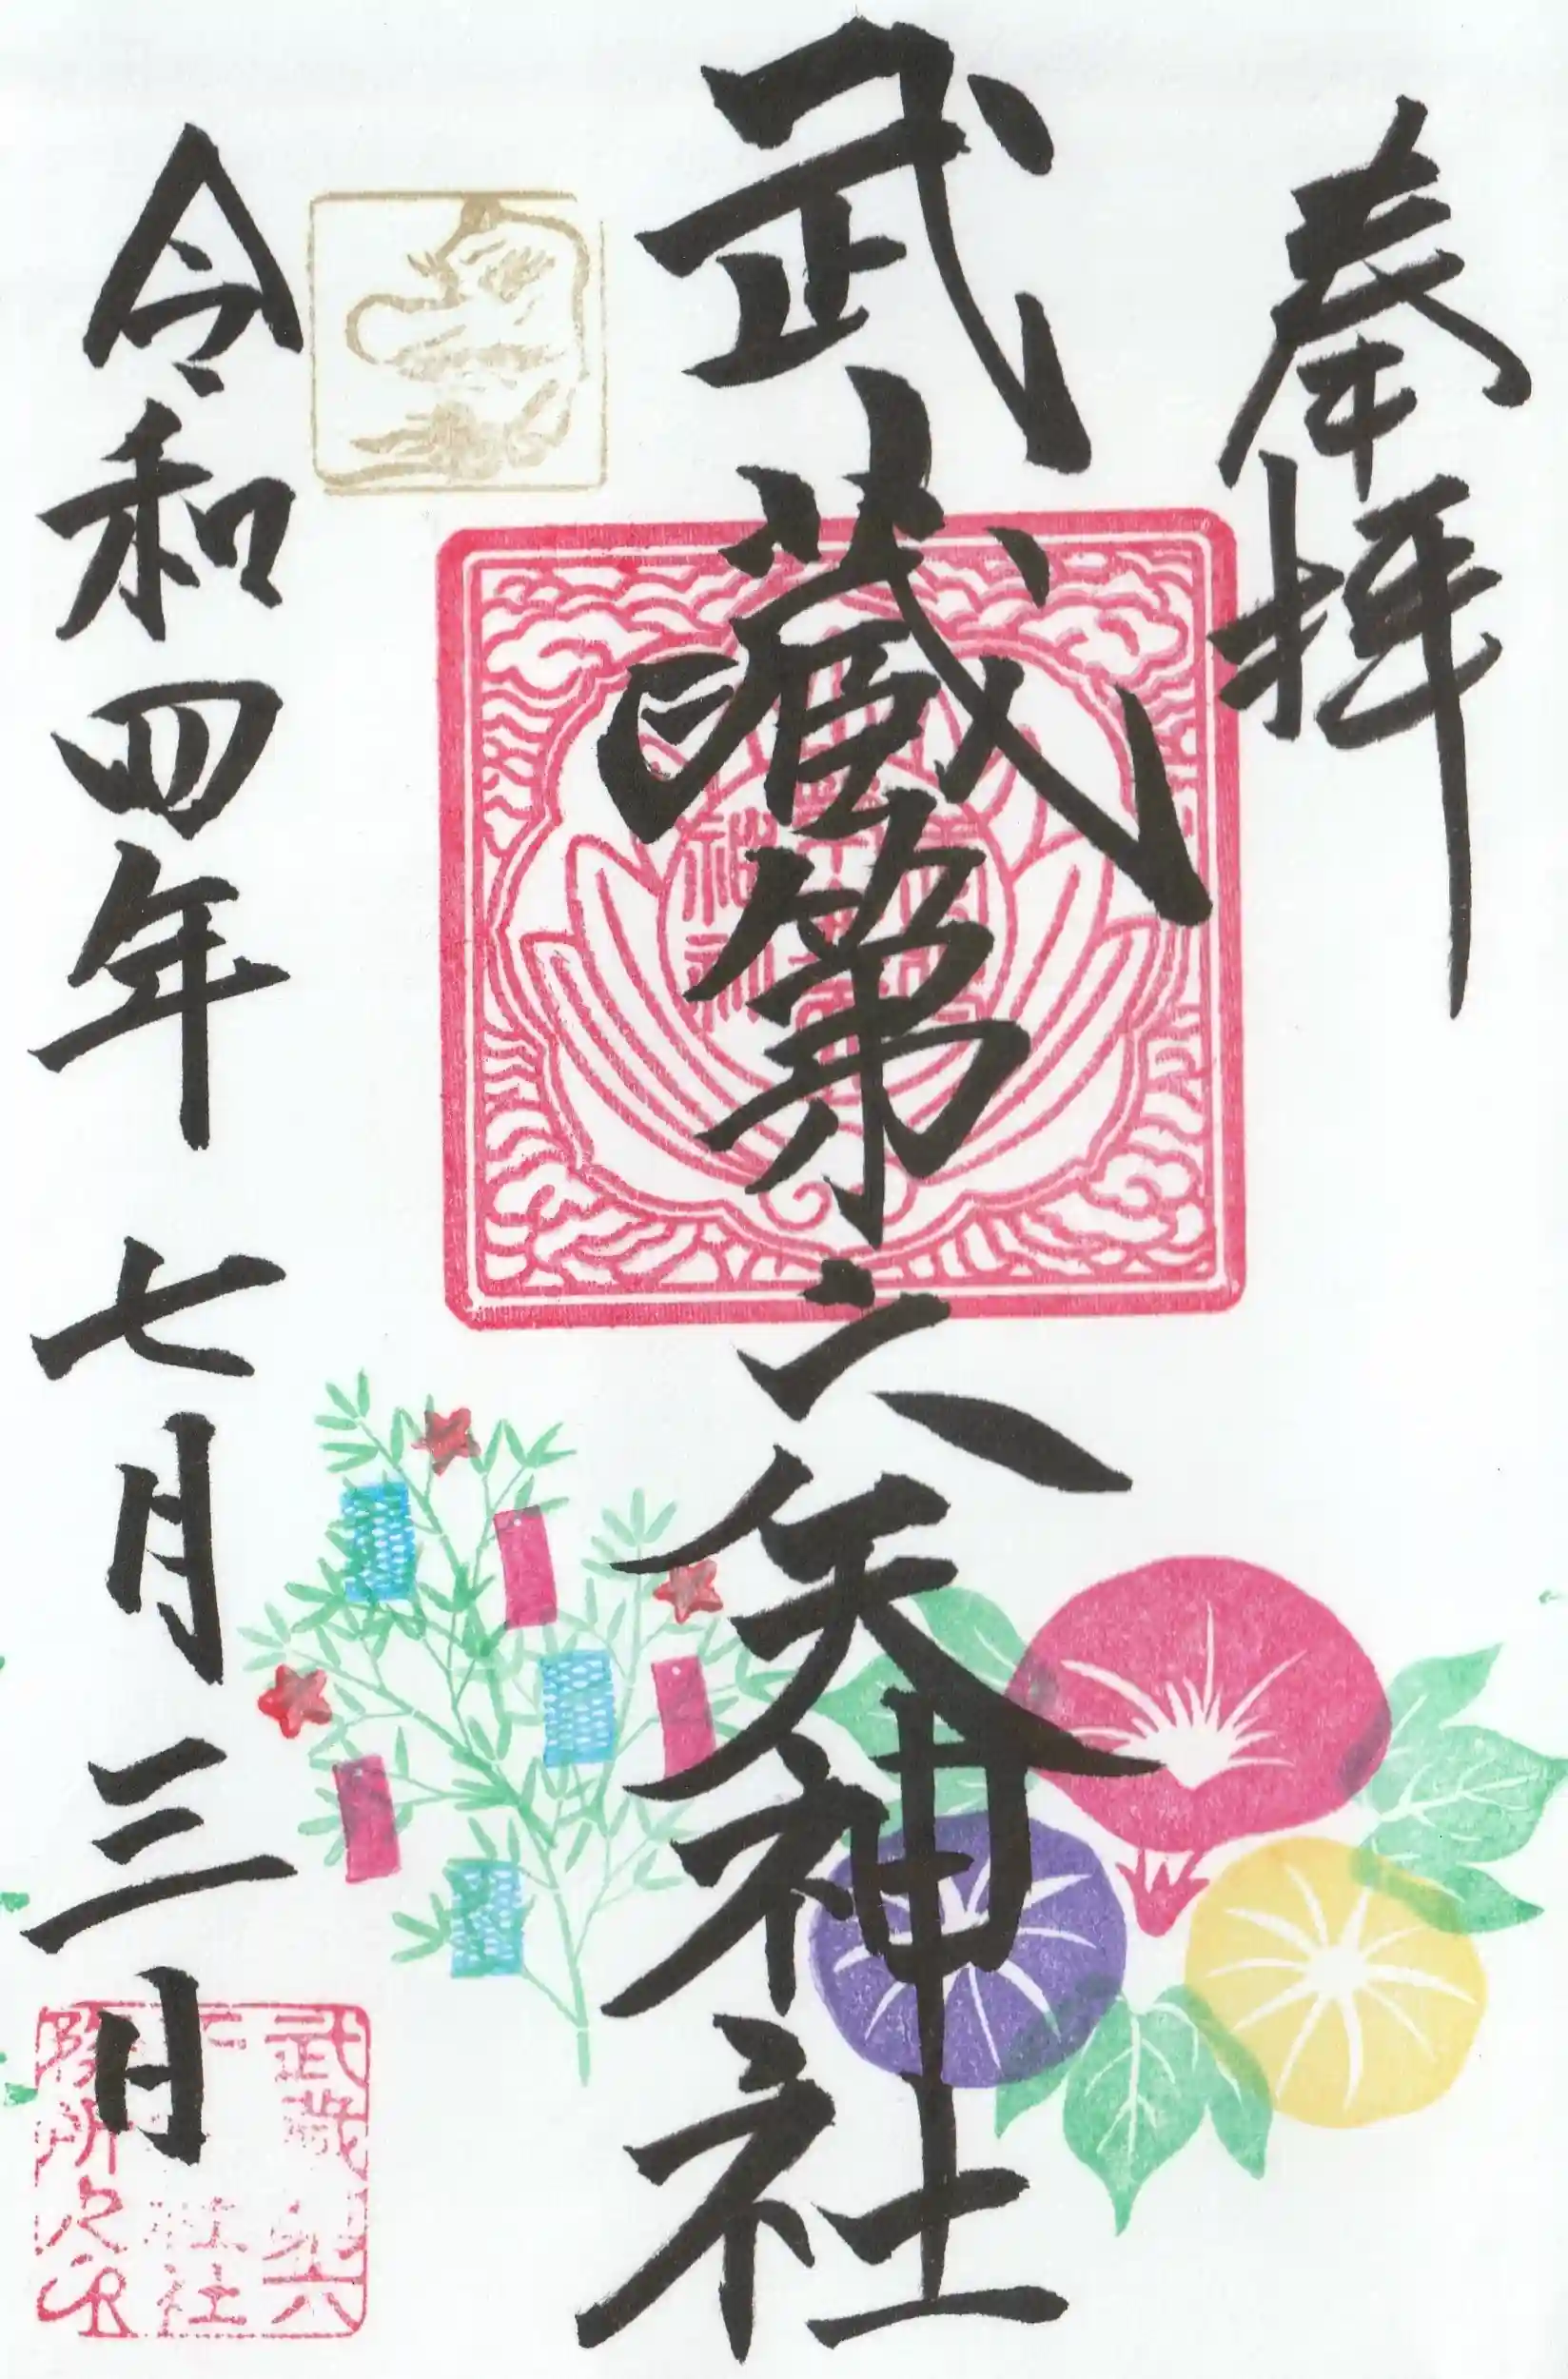 奉拝
武藏第六天神社
令和四年七月三日
武蔵第六
天神社社
務所之印